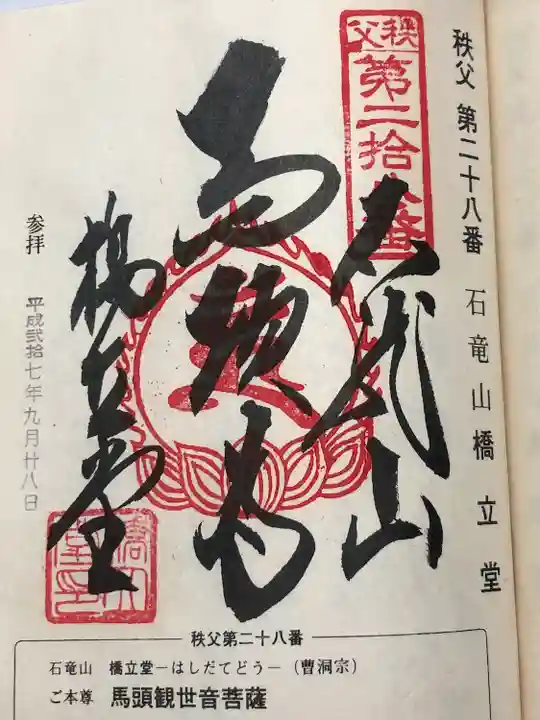 秩父 第二十八番 石竜山橋立堂
秩父
第二拾八番
石龍山
馬頭尊
橋立堂
参拝
平成弐拾七年九月廿八日
秩父第二十八番
石竜山 橋立堂−はしだてどう−(曹洞宗)
ご本尊 馬頭観世音菩薩